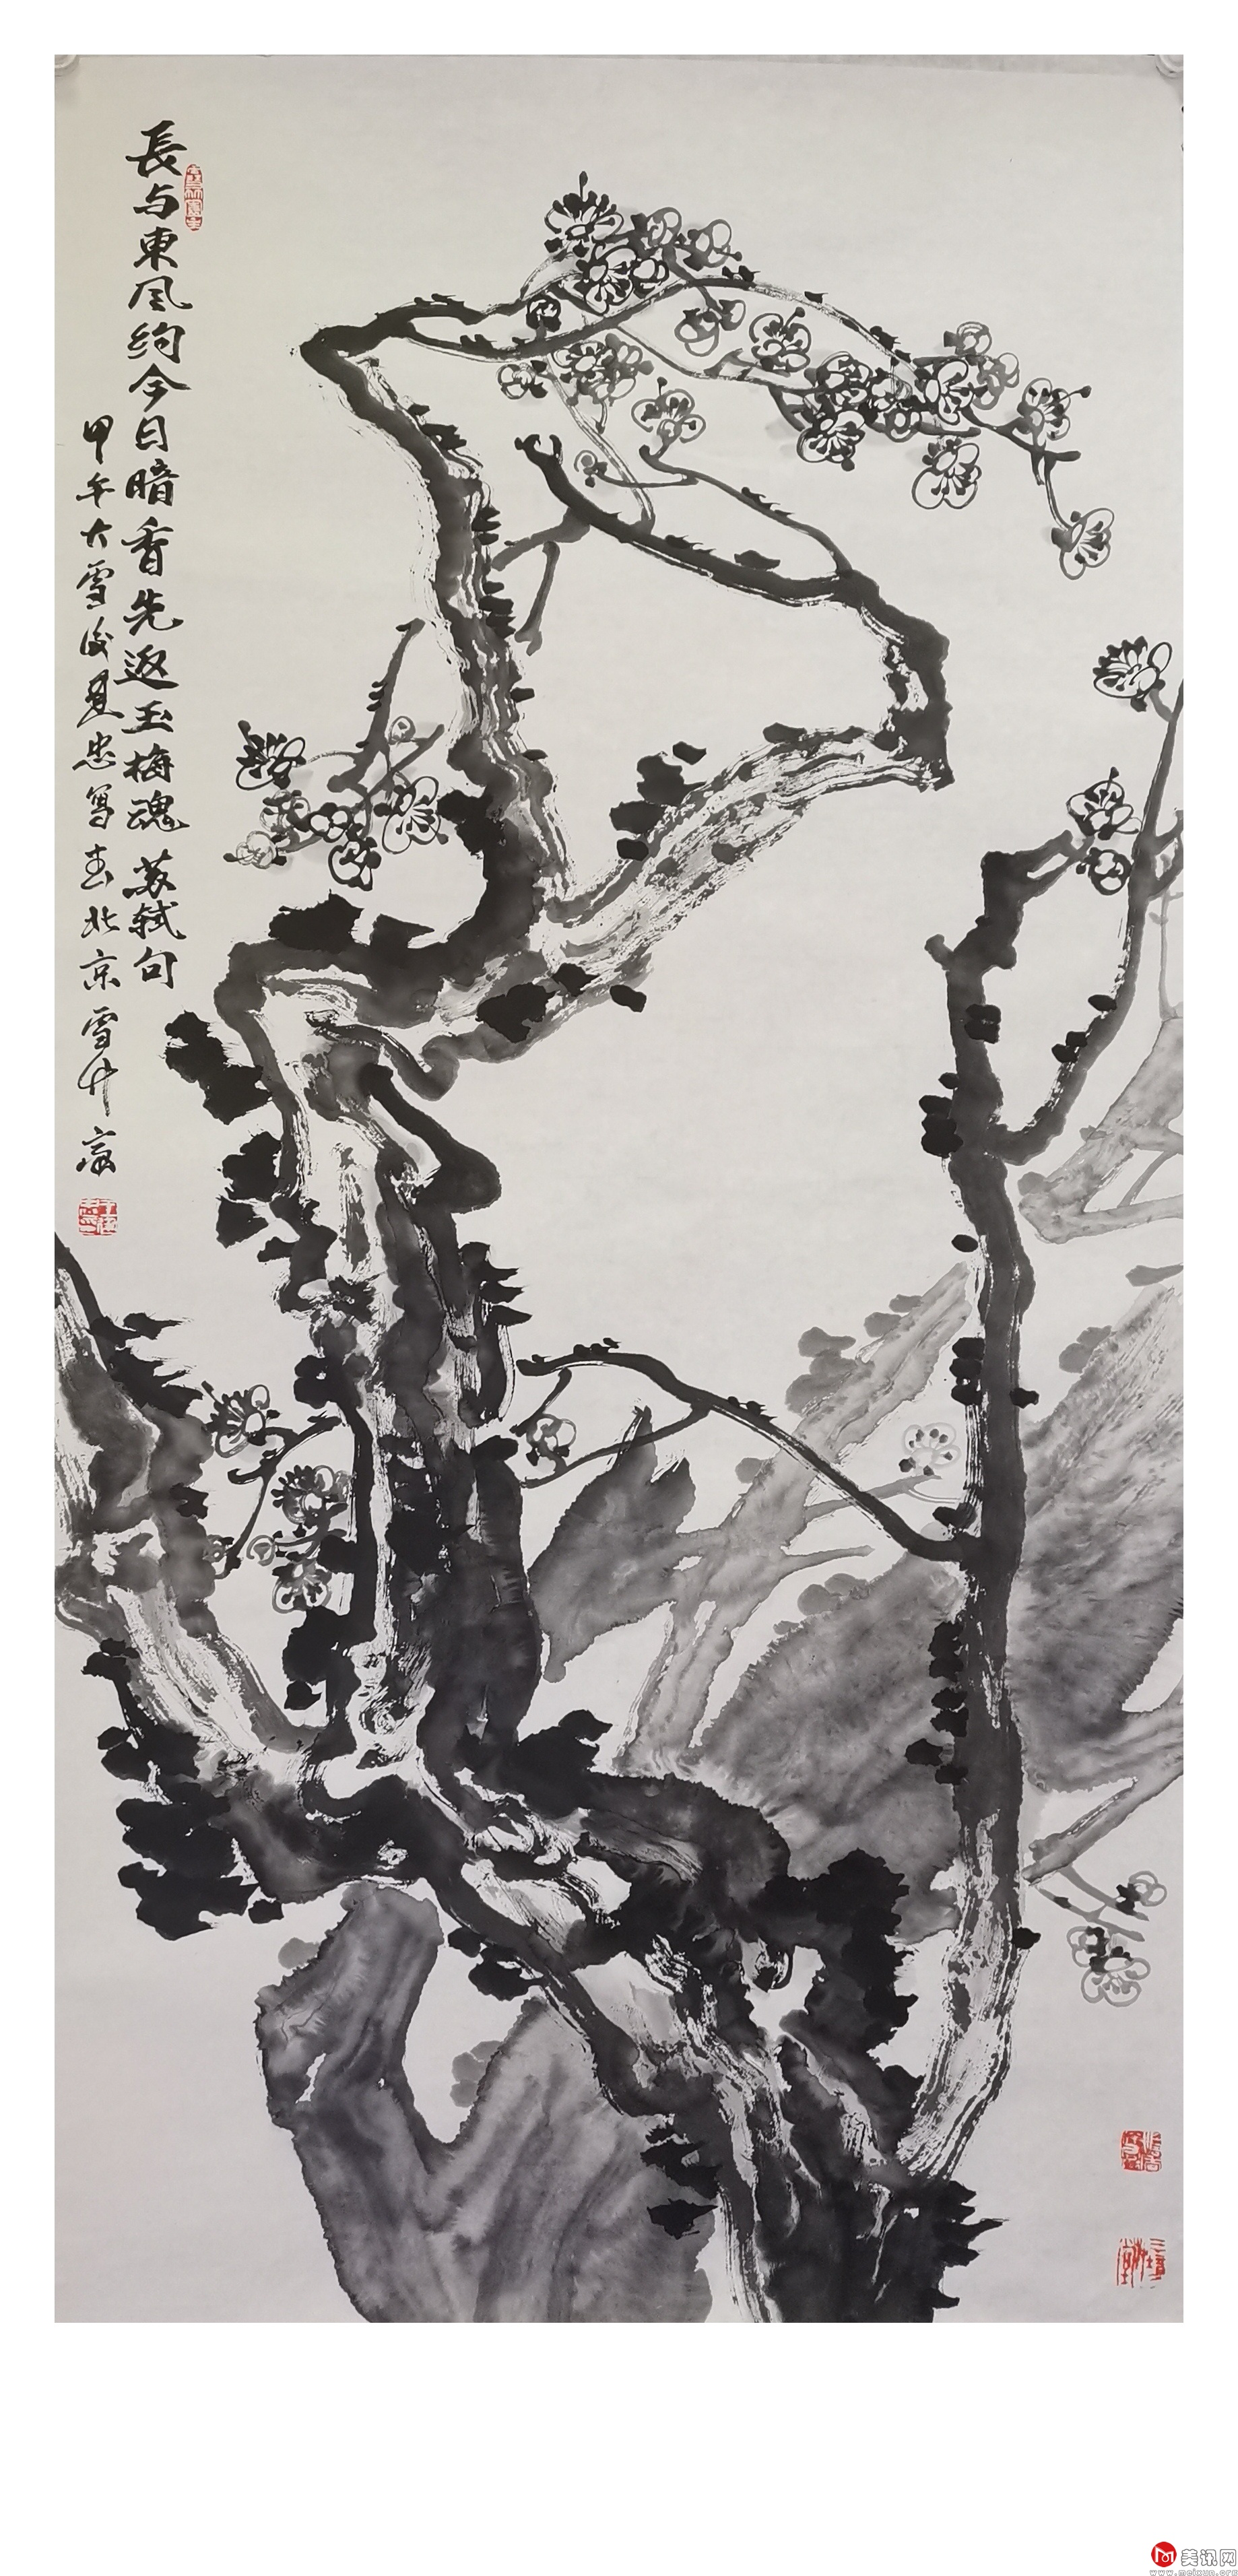 長与東風约今日暗香先返玉梅魂 苏轼句
甲午大雪後建忠写于北京雪竹斋
美讯网
www.meixun.org